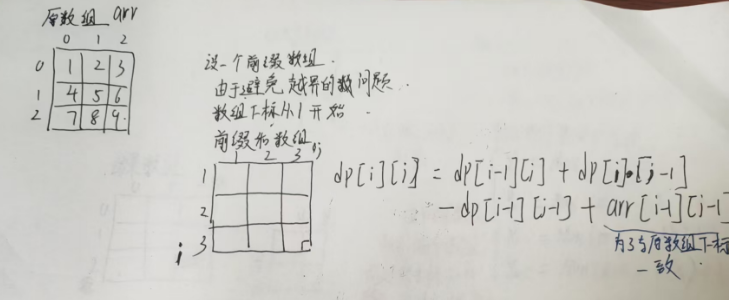 原数组 arr
0 1 2
0 1 2 3
1 4 5 6
2 7 8 9
设一个前缀数组.
由于避免越界的数问题.
数组下标从1开始
前缀和数组
1 2 3 j
1
2
3
i
dp[i][j] = dp[i-1][j] + dp[i][j-1]
- dp[i-1][j-1] + arr[i-1][j-1]
为了与原数组下标
一致